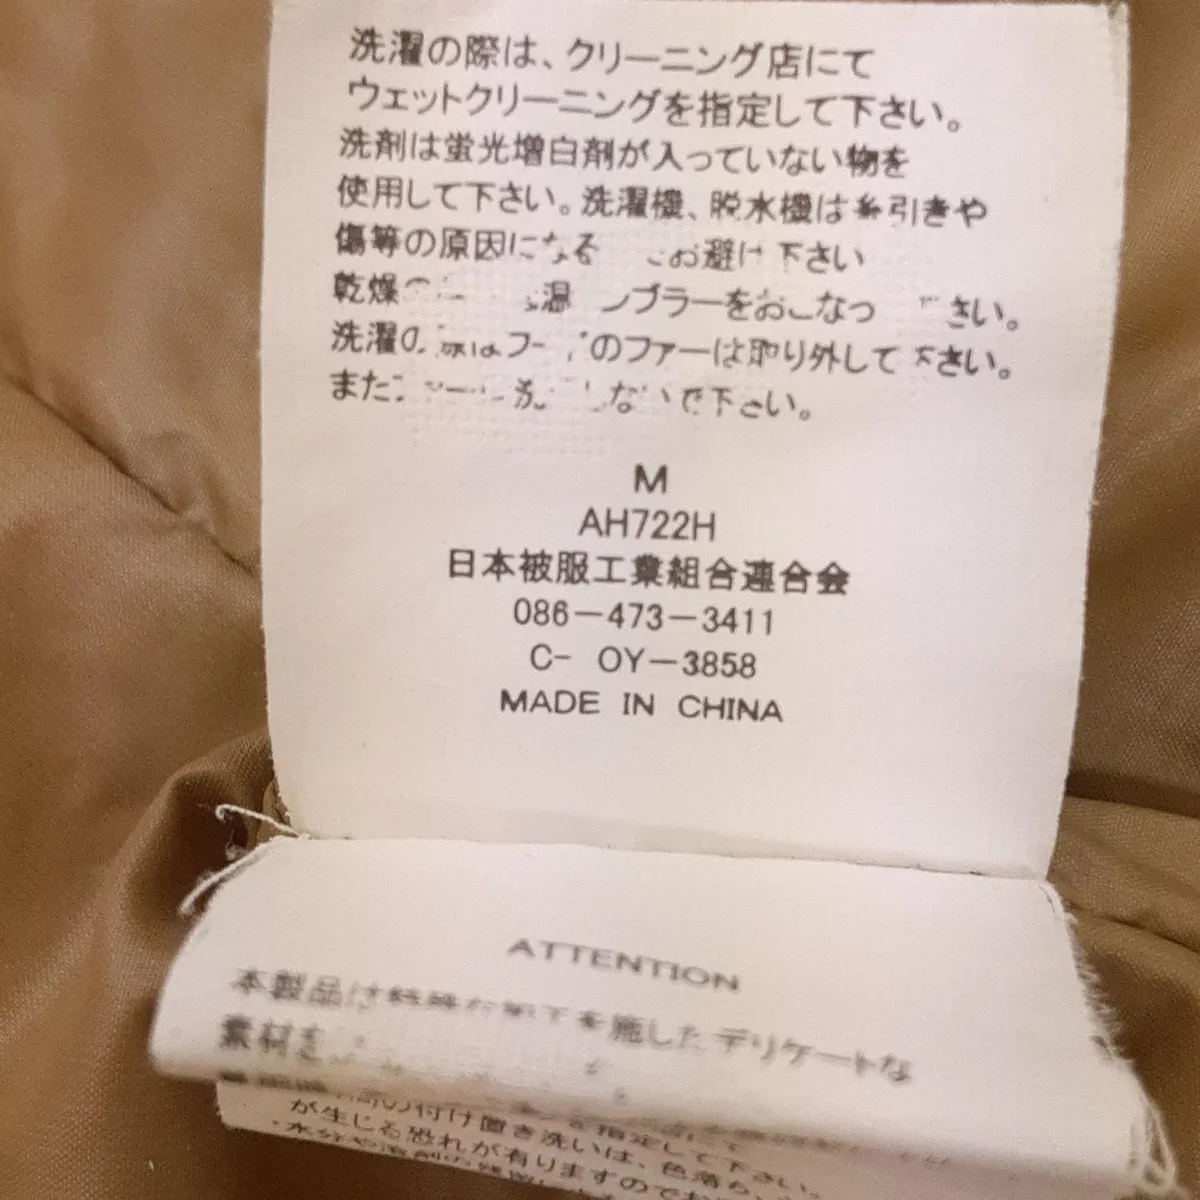 洗濯の際は、クリーニング店にて
ウェットクリーニングを指定して下さい。
洗剤は蛍光増白剤が入っていない物を
使用して下さい。洗濯機、脱水機は糸引きや
傷等の原因になる お避け下さい
乾燥 温 ンブラーをおこなっ さい。
洗濯の際はフードのファーは取り外して下さい。
また 洗 しないで下さい。
M
AH722H
日本被服工業組合連合会
086-473-3411
C- OY-3858
MADE IN CHINA
ATTENTION
本製品は特殊な加工を施したデリケートな
素材を
の付け置き洗いは、色落ち
が生じる恐れが有りますのでお